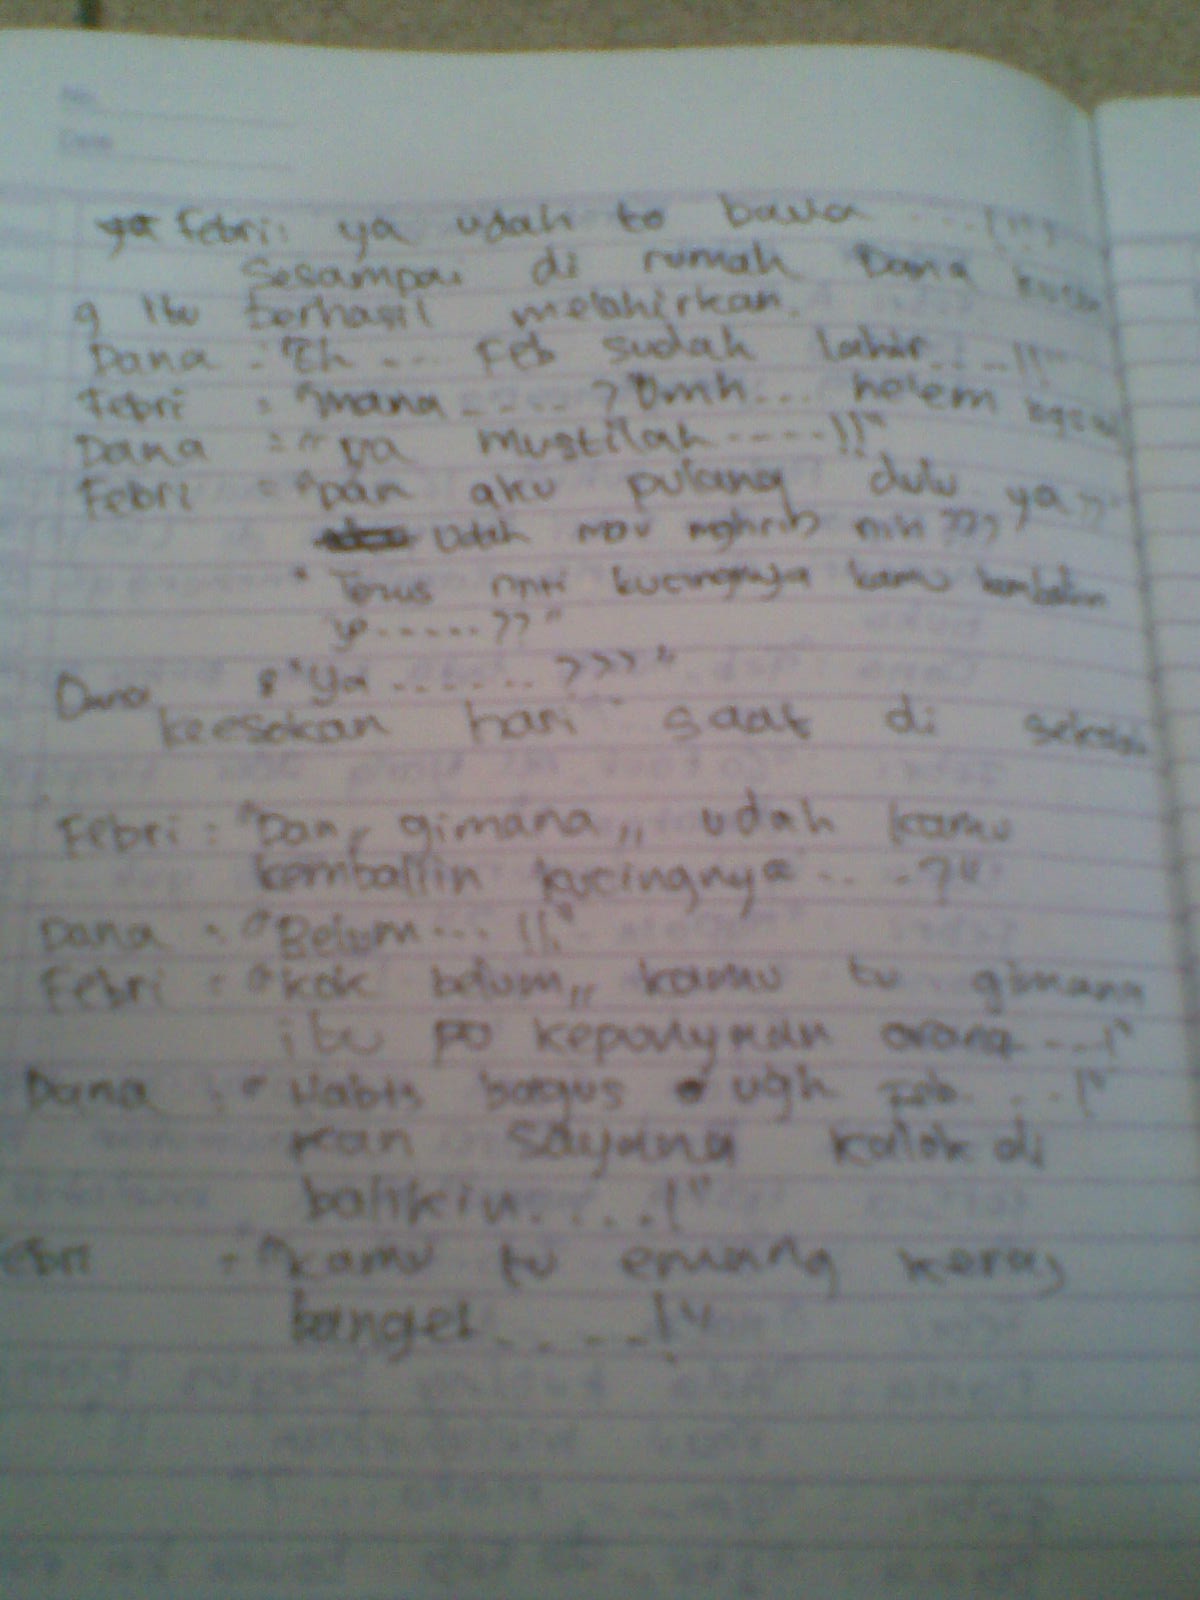 No.
Date
Febri: ya udah to bawa ...(!!!)
Sesampai di rumah Dana
g itu berhasil melahirkan.
Dana : "Eh ... Feb sudah lahir....!!"
Febri : "mana.....? Omh... helem
Dana : "ya mustilah ----!!"
Febri : "Dan aku pulang dulu ya??"
udah mau mghrib nih ???
"Terus nnti kucingnya kamu kembaliin
ya......??"
Dana : "Ya .......???"
keesokan hari saat di sekolah
Febri : "Dan,, gimana,, udah kamu
kemballin kucingnya ....?"
Dana : "Belum... !!"
Febri : "kok belum,, kamu tu gimana
itu po kepunyaan orang ...!"
Dana : "Habis bagus ugh Feb ...!"
kan sayang kalok di
balikin....!"
ebri : "kamu tu emang keras
banget ....!"